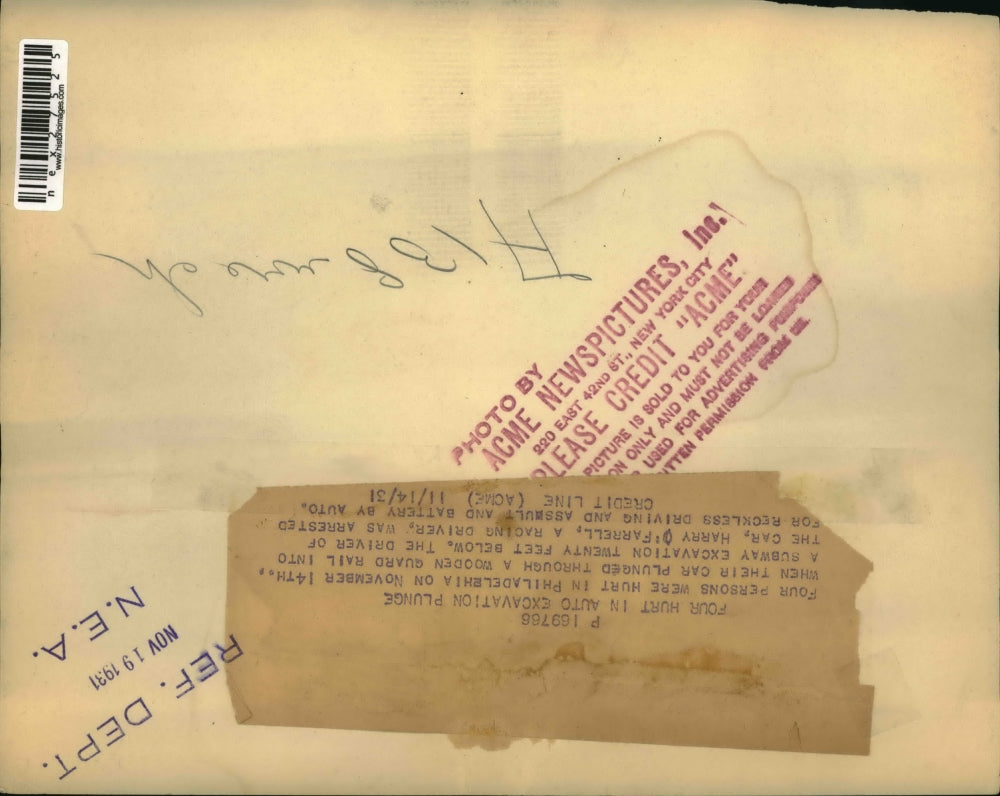 nex27525
www.historicimages.com
A138 wreck
PHOTO BY
ACME NEWSPICTURES, Inc.
220 EAST 42ND ST., NEW YORK CITY
PLEASE CREDIT "ACME"
PICTURE IS SOLD TO YOU FOR YOUR
ON ONLY AND MUST NOT BE LOANED
USED FOR ADVERTISING PURPOSES
ITTEN PERMISSION FROM US.
P 169766
FOUR HURT IN AUTO EXCAVATION PLUNGE
FOUR PERSONS WERE HURT IN PHILADELPHIA ON NOVEMBER 14TH.,
WHEN THEIR CAR PLUNGED THROUGH A WOODEN GUARD RAIL INTO
A SUBWAY EXCAVATION TWENTY FEET BELOW. THE DRIVER OF
THE CAR, HARRY O'FARRELL, A RACING DRIVER, WAS ARRESTED
FOR RECKLESS DRIVING AND ASSAULT AND BATTERY BY AUTO.
CREDIT LINE (ACME) 11/14/31
REF. DEPT.
NOV 19 1931
N.E.A.